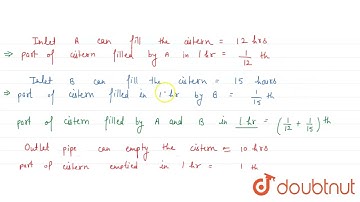 Inlet A can fill the cistern = 12 hrs
⇒ part of cistern filled by A in 1 hr = 1/12 th
Inlet B can fill the cistern = 15 hours
⇒ part of cistern filled in 1 hr by B = 1/15 th
part of cistern filled by A and B in 1 hr = (1/12 + 1/15) th
Outlet pipe can empty the cistern = 10 hrs
part of cistern emptied in 1 hr = 1 th
doubtnut